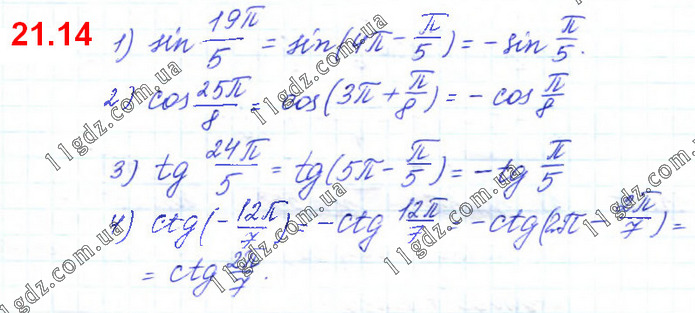 21.14
1) sin 19π/5 = sin(4π - π/5) = - sin π/5.
2) cos 25π/8 = cos(3π + π/8) = - cos π/8
3) tg 24π/5 = tg(5π - π/5) = - tg π/5
4) ctg(-12π/7) = - ctg 12π/7 = - ctg(2π - 2π/7) =
= ctg 2π/7.
11gdz.com.ua
11gdz.com.ua
11gdz.com.ua
11gdz.com.ua
11gdz.com.ua
11gdz.com.ua